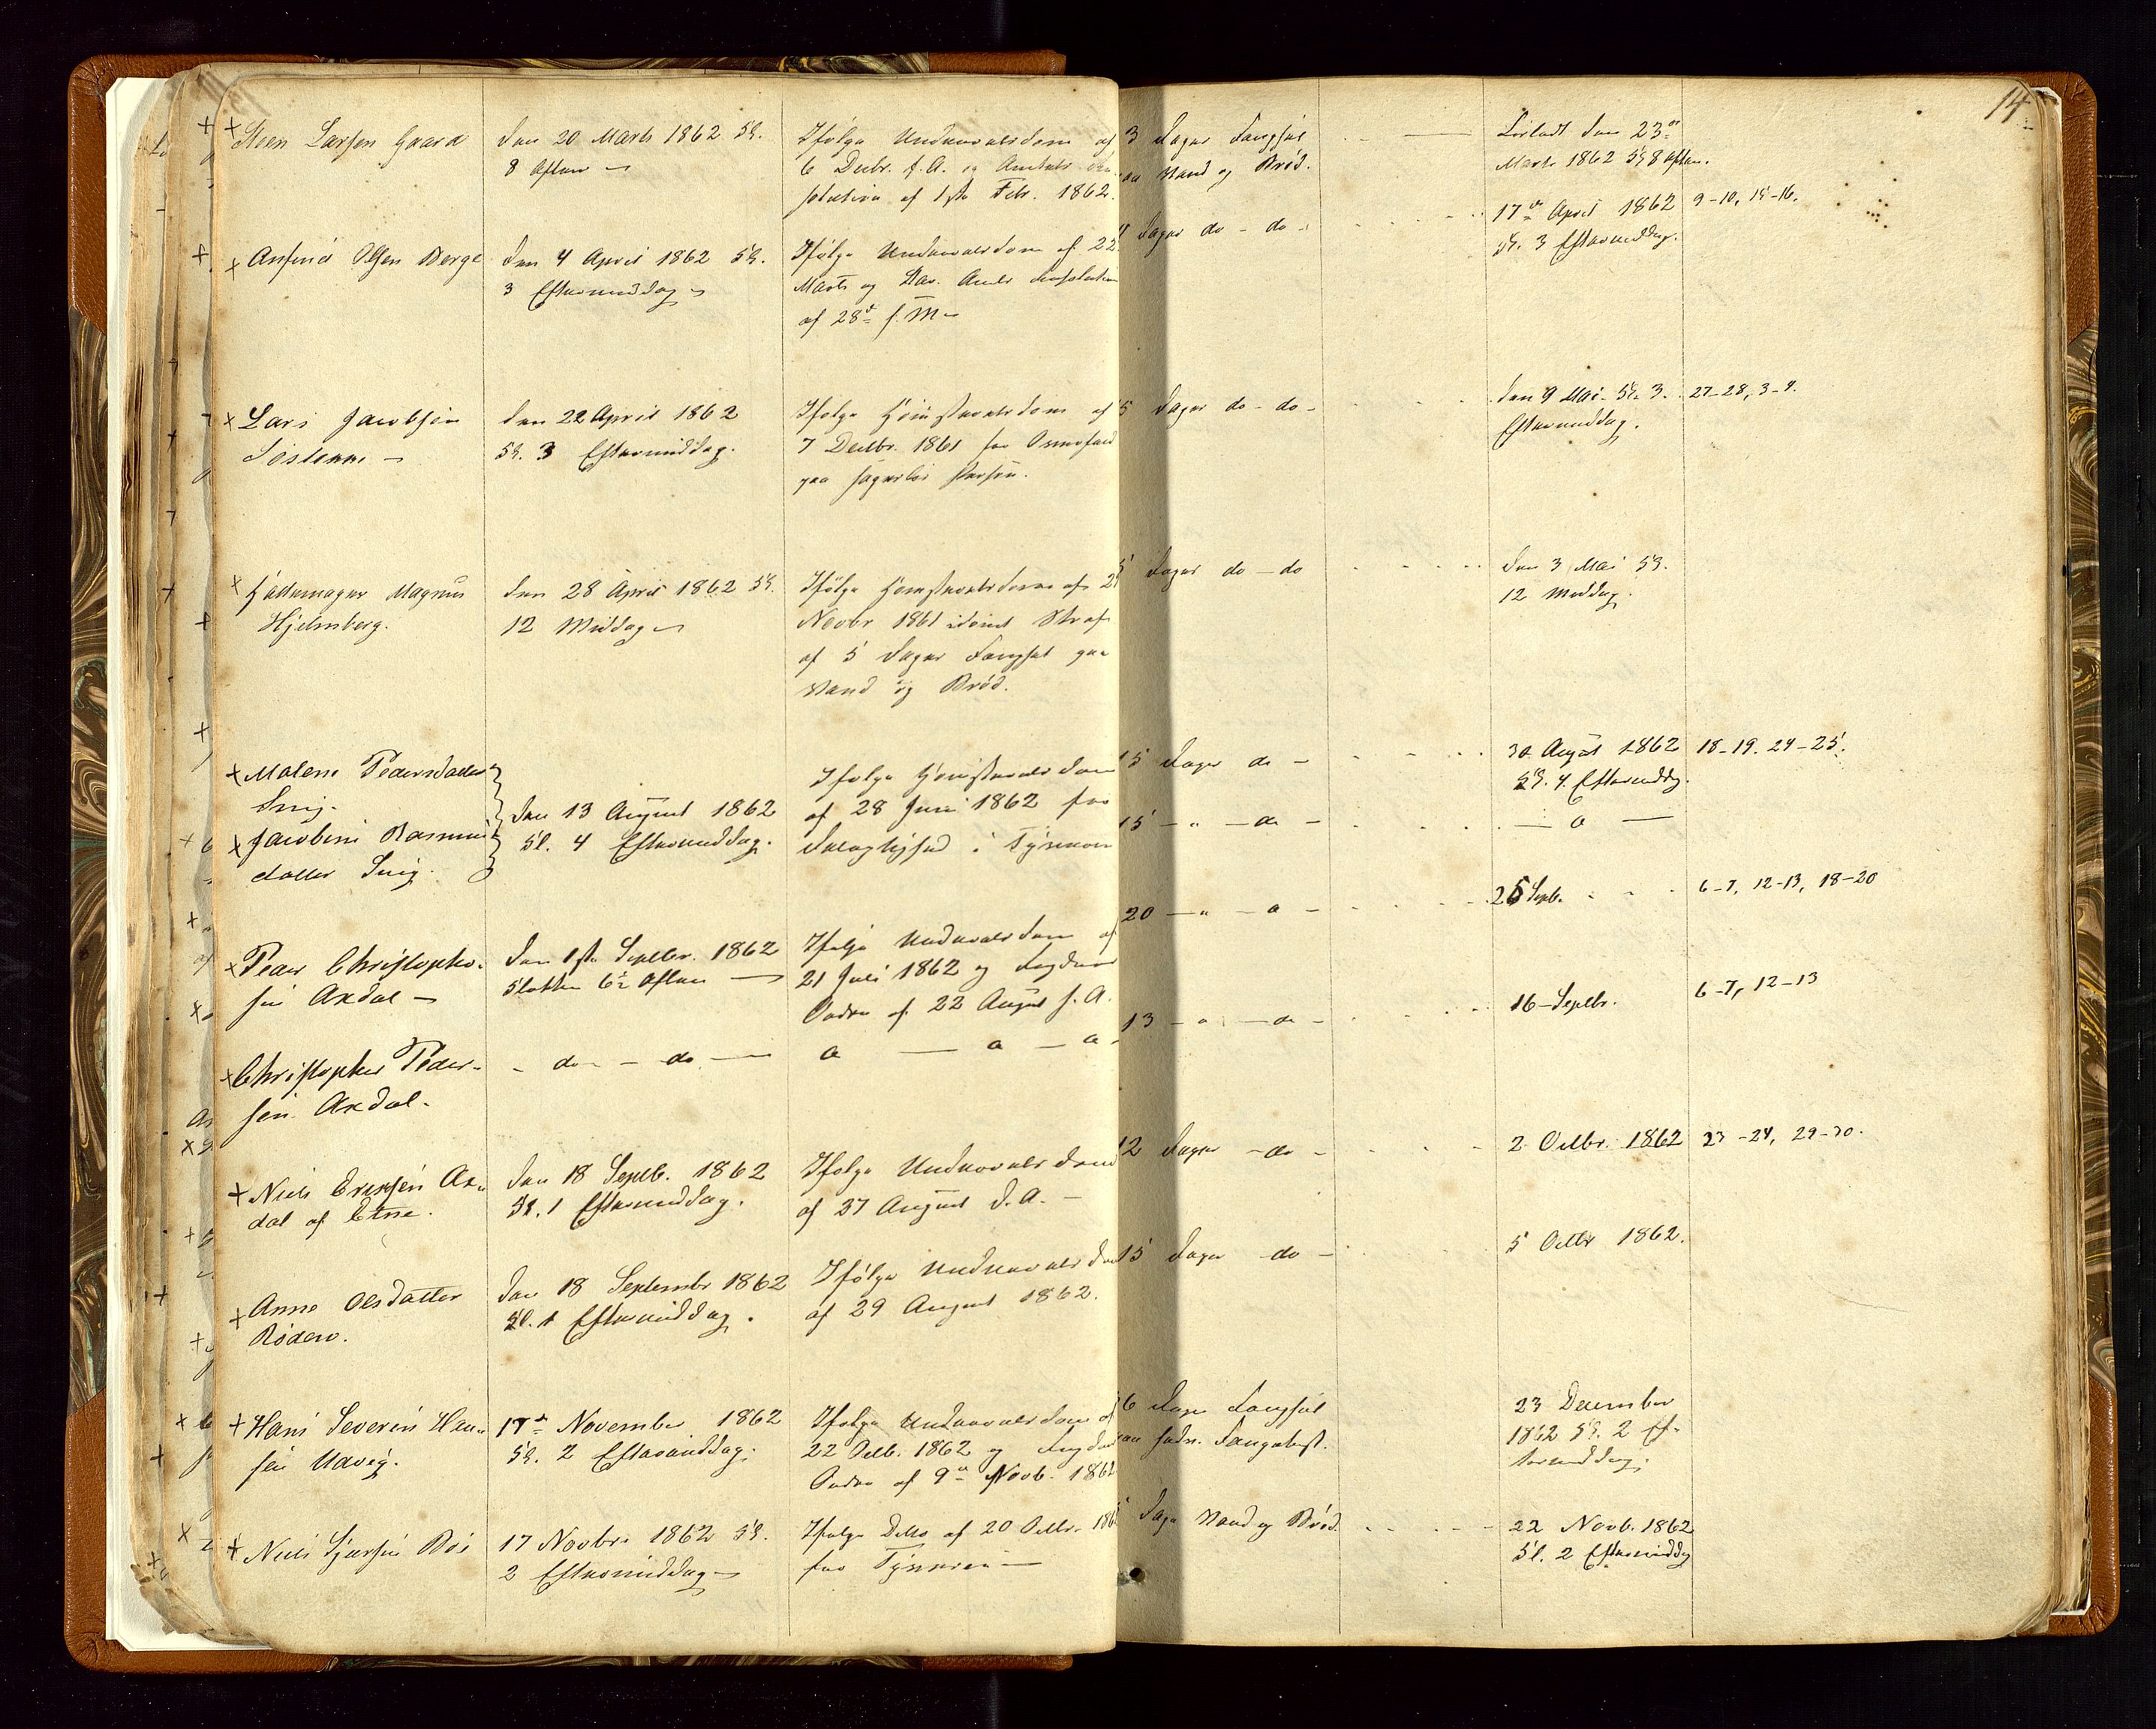 14
Steen Larsen Gaard
den 20 Marts 1862 Kl.
8 Aften
Ifølge Underretsdom af
6 Decbr. f. A. og Amtets Re
solution af 1ste Febr. 1862.
3 Dages Fængsel
paa Vand og Brød.
Løsladt den 23de
Marts 1862 Kl 8 Aften.
Anfind Olsen Berge
den 4 April 1862 Kl.
3 Eftermiddag
Ifølge Underretsdom af 22
Marts og Stav. Amts Resolution
af 28de s. M.
Dage do - do -
17de April 1862
Kl. 3 Eftermiddag.
9-10, 15-16.
Lars Jacobsen
den 22 April 1862
Kl. 3 Eftermiddag.
Ifølge Høiesteretsdom af
7 Decbr. 1861 for Overfald
paa sagesløs Person.
5 Dage do - do -
den 9 Mai Kl. 3
Eftermiddag.
27-28, 3-4.
Hattemager Magnus
Hjelmberg.
den 28 April 1862 Kl.
12 Middag
Ifølge Høiesteretsdom af 2
Novbr 1861 idømt Straf
af 5 Dages Fængsel paa
Vand og Brød.
5 Dage do - do
den 3 Mai Kl.
12 Middag.
Malene Pedersdatter
Jacobine Rasmus
datter
den 13 August 1862
Kl. 4 Eftermiddag.
Ifølge Høiesteretsdom
af 28 Juni 1862 for
Delagtighed i Tyverie
15 Dage do -
30 August 1862
Kl. 4 Eftermiddg.
18-19. 24-25.
15 - " - do -
Peder Christophe-
sen Axdal -
den 1ste Septbr. 1862
Klokken 6½ Aften -
Ifølge Underretsdom af
21 Juli 1862 og Fogdens
Ordre af 22 August s. A.
20 - " -
Septb.
6-7, 12-13, 18-20
Christopher Peder-
sen Axdal.
- do - do -
13 - " - do -
16 Septbr.
6-7, 12-13
Niels Ericksen Ax-
dal af Etne.
den 18 Septb. 1862
Kl. 1 Eftermiddag.
Ifølge Underretsdom
af 27 August d. A. -
12 Dage - do -
2 Octbr. 1862
23-24, 29-30.
Anne Olsdatter
den 18 Septembr 1862
Kl. 1 Eftermiddag.
Ifølge Underretsdom
af 29 August 1862.
15 Dage do -
5 Octbr 1862.
Hans Severin Han-
sen
17de November 1862
Kl. 2 Eftermiddag.
Ifølge Underretsdom af
22 Octb. 1862 og Fogdens
Ordre af 9de Novb. 1862
6 Dage Fængsel
paa sædv. Fangekost.
23 December
1862 Kl. 2 Ef-
termiddag.
Niels
17 Novbr. 1862 Kl.
2 Eftermiddag
Ifølge Ditto af 20 Octbr. 186
for Tyverie
Dage Vand og Brød.
22 Novb. 1862
Kl. 2 Eftermiddg